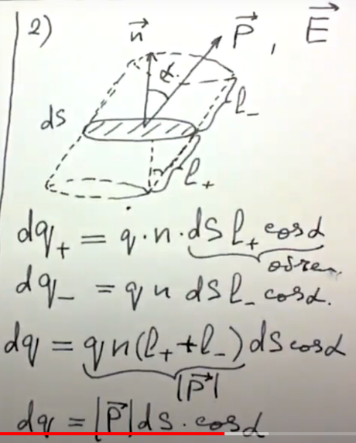 2) n⃗ P⃗, E⃗
α
dS l₋
l₊
dq₊ = q·n·dS l₊ cosα
объем
dq₋ = q n dS l₋ cosα.
dq = q n (l₊ + l₋) dS cosα
|P⃗|
dq = |P⃗| dS · cosα